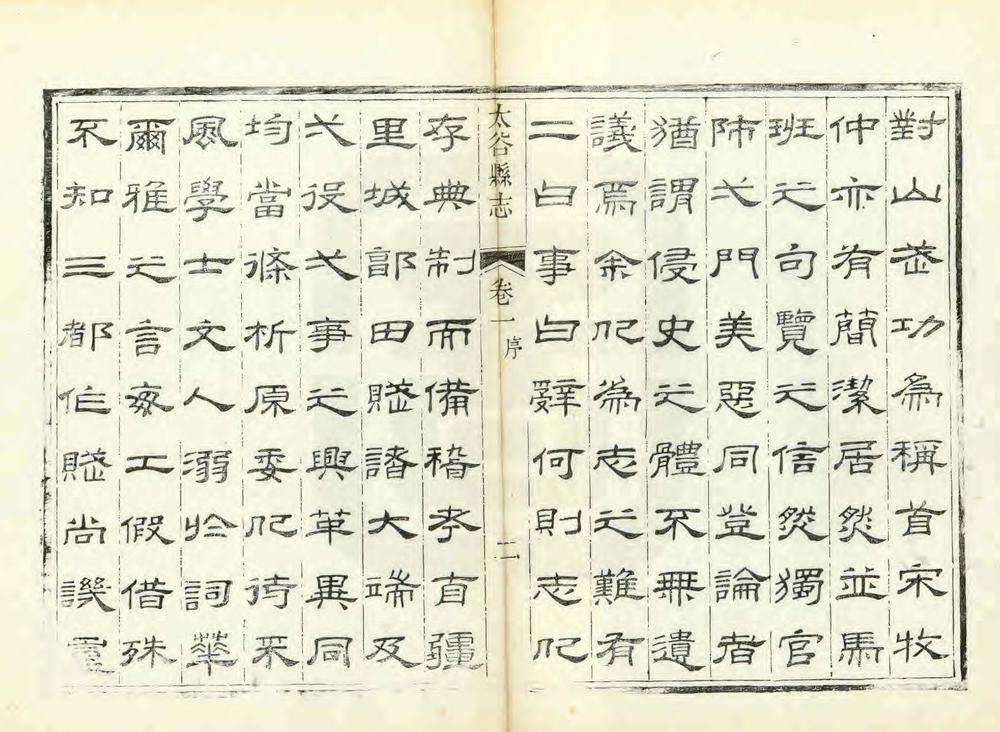 對山武功為稱首宋牧
仲亦有簡潔居然並馬
班之句覽之信然獨官
師弌門美惡同登論者
猶謂侵史之體不無遺
議焉余以為志之難有
二曰事曰辭何則志以
太谷縣志 卷一 序 二
存典制而備稽考自疆
里城郭田賦諸大端及
弌役弌事之興革異同
均當條析原委以待采
風學士文人溺於詞華
爾雅之言每工假借殊
不知三都作賦尚譏